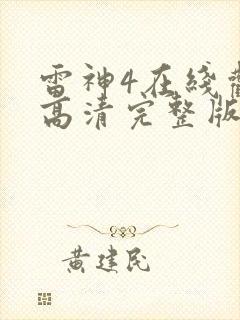 雷神4在线
高清完整版
黄建民